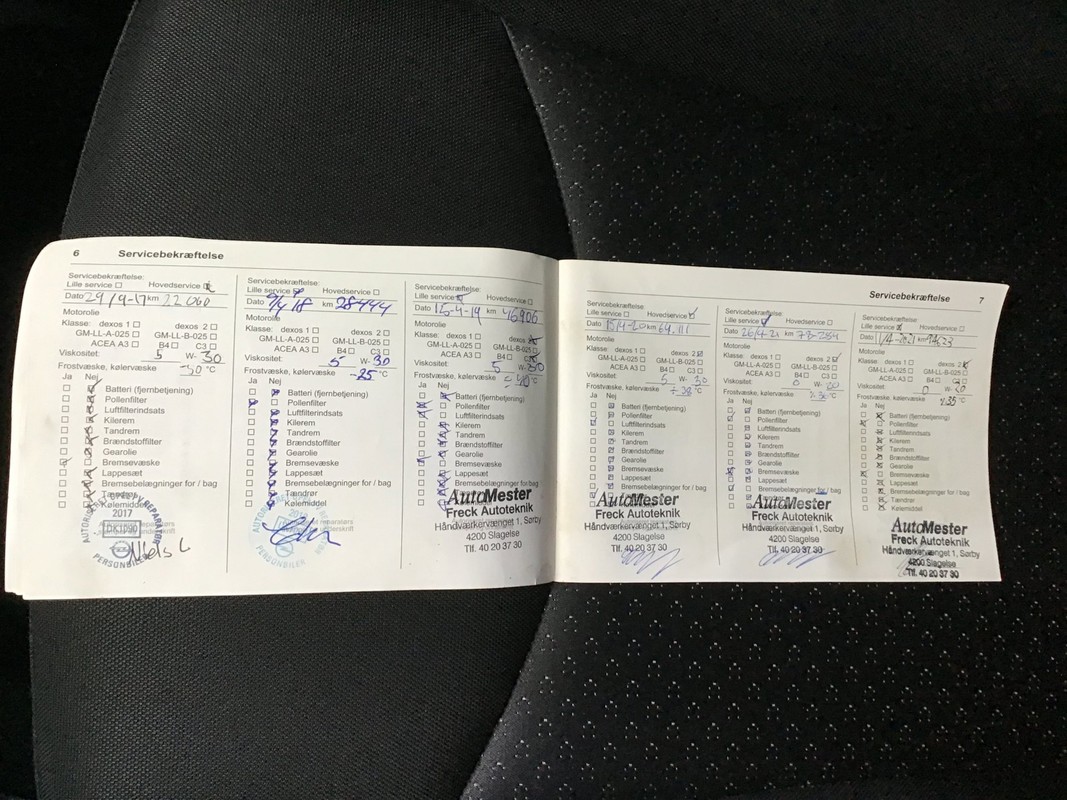 6 Servicebekræftelse
Servicebekræftelse:
Lille service ☐ Hovedservice ☒
Dato 29/9-17 km 22060
Motorolie
Klasse: dexos 1 ☐ dexos 2 ☐
GM-LL-A-025 ☐ GM-LL-B-025 ☐
ACEA A3 ☐ B4 ☐ C3 ☐
Viskositet: 5 W- 30
Frostvæske, kølervæske -30 °C
Ja Nej
Batteri (fjernbetjening)
Pollenfilter
Luftfilterindsats
Kilerem
Tandrem
Brændstoffilter
Gearolie
Bremsevæske
Lappesæt
Bremsebelægninger for / bag
Tændrør
Kølemiddel
2017
DK1090
PERSONBILER
Servicebekræftelse:
Lille service Hovedservice ☐
Dato 9/4 18 km 28444
Motorolie
Klasse: dexos 1 ☐ dexos 2 ☐
GM-LL-A-025 ☐ GM-LL-B-025 ☐
ACEA A3 ☐ B4 ☐ C3 ☐
Viskositet: 5 W- 30
Frostvæske, kølervæske -25 °C
Ja Nej
Batteri (fjernbetjening)
Pollenfilter
Luftfilterindsats
Kilerem
Tandrem
Brændstoffilter
Gearolie
Bremsevæske
Lappesæt
Bremsebelægninger for / bag
Tændrør
Kølemiddel
PERSONBILER
Servicebekræftelse:
Lille service ☒ Hovedservice ☐
Dato 15-4-19 km 46906
Motorolie
Klasse: dexos 1 ☐ dexos 2 ☒
GM-LL-A-025 ☐ GM-LL-B-025 ☐
ACEA A3 ☐ B4 ☐ C3
Viskositet: 5 W- 30
Frostvæske, kølervæske ÷ 40 °C
Ja Nej
Batteri (fjernbetjening)
Pollenfilter
Luftfilterindsats
Kilerem
Tandrem
Brændstoffilter
Gearolie
Bremsevæske
Lappesæt
Bremsebelægninger for / bag
AutoMester
Freck Autoteknik
Håndværkervænget 1, Sørby
4200 Slagelse
Tlf. 40 20 37 30
Servicebekræftelse 7
Servicebekræftelse:
Lille service ☐ Hovedservice ☑
Dato 15/4-20 km 64.111
Motorolie
Klasse: dexos 1 ☐ dexos 2 ☒
GM-LL-A-025 ☐ GM-LL-B-025 ☐
ACEA A3 ☐ B4 ☐ C3 ☐
Viskositet: 5 W- 30
Frostvæske, kølervæske ÷ 38 °C
Ja Nej
Batteri (fjernbetjening)
Pollenfilter
Luftfilterindsats
Kilerem
Tandrem
Brændstoffilter
Gearolie
Bremsevæske
Lappesæt
Bremsebelægninger for / bag
AutoMester
Freck Autoteknik
Håndværkervænget 1, Sørby
4200 Slagelse
Tlf. 40 20 37 30
Servicebekræftelse:
Lille service ☑ Hovedservice ☐
Dato 26/4-21 km 73-284
Motorolie
Klasse: dexos 1 ☐ dexos 2 ☑
GM-LL-A-025 ☐ GM-LL-B-025 ☐
ACEA A3 ☐ B4 ☐ C3 ☐
Viskositet: 0 W- 30
Frostvæske, kølervæske °C
Ja Nej
Batteri (fjernbetjening)
Pollenfilter
Luftfilterindsats
Kilerem
Tandrem
Brændstoffilter
Gearolie
Bremsevæske
Lappesæt
Bremsebelægninger for / bag
Tændrør
AutoMester
Freck Autoteknik
Håndværkervænget 1, Sørby
4200 Slagelse
Tlf. 40 20 37 30
Servicebekræftelse:
Lille service ☒ Hovedservice ☐
Dato km
Motorolie
Klasse: dexos 1 ☐ dexos 2 ☒
GM-LL-A-025 ☐ GM-LL-B-025 ☐
ACEA A3 ☐ B4 ☐ C3
Viskositet: 0 W- 30
Frostvæske, kølervæske 35 °C
Ja Nej
Batteri (fjernbetjening)
Pollenfilter
Luftfilterindsats
Kilerem
Tandrem
Brændstoffilter
Gearolie
Bremsevæske
Lappesæt
Bremsebelægninger for / bag
Tændrør
Kølemiddel
AutoMester
Freck Autoteknik
Håndværkervænget 1, Sørby
4200 Slagelse
Tlf. 40 20 37 30